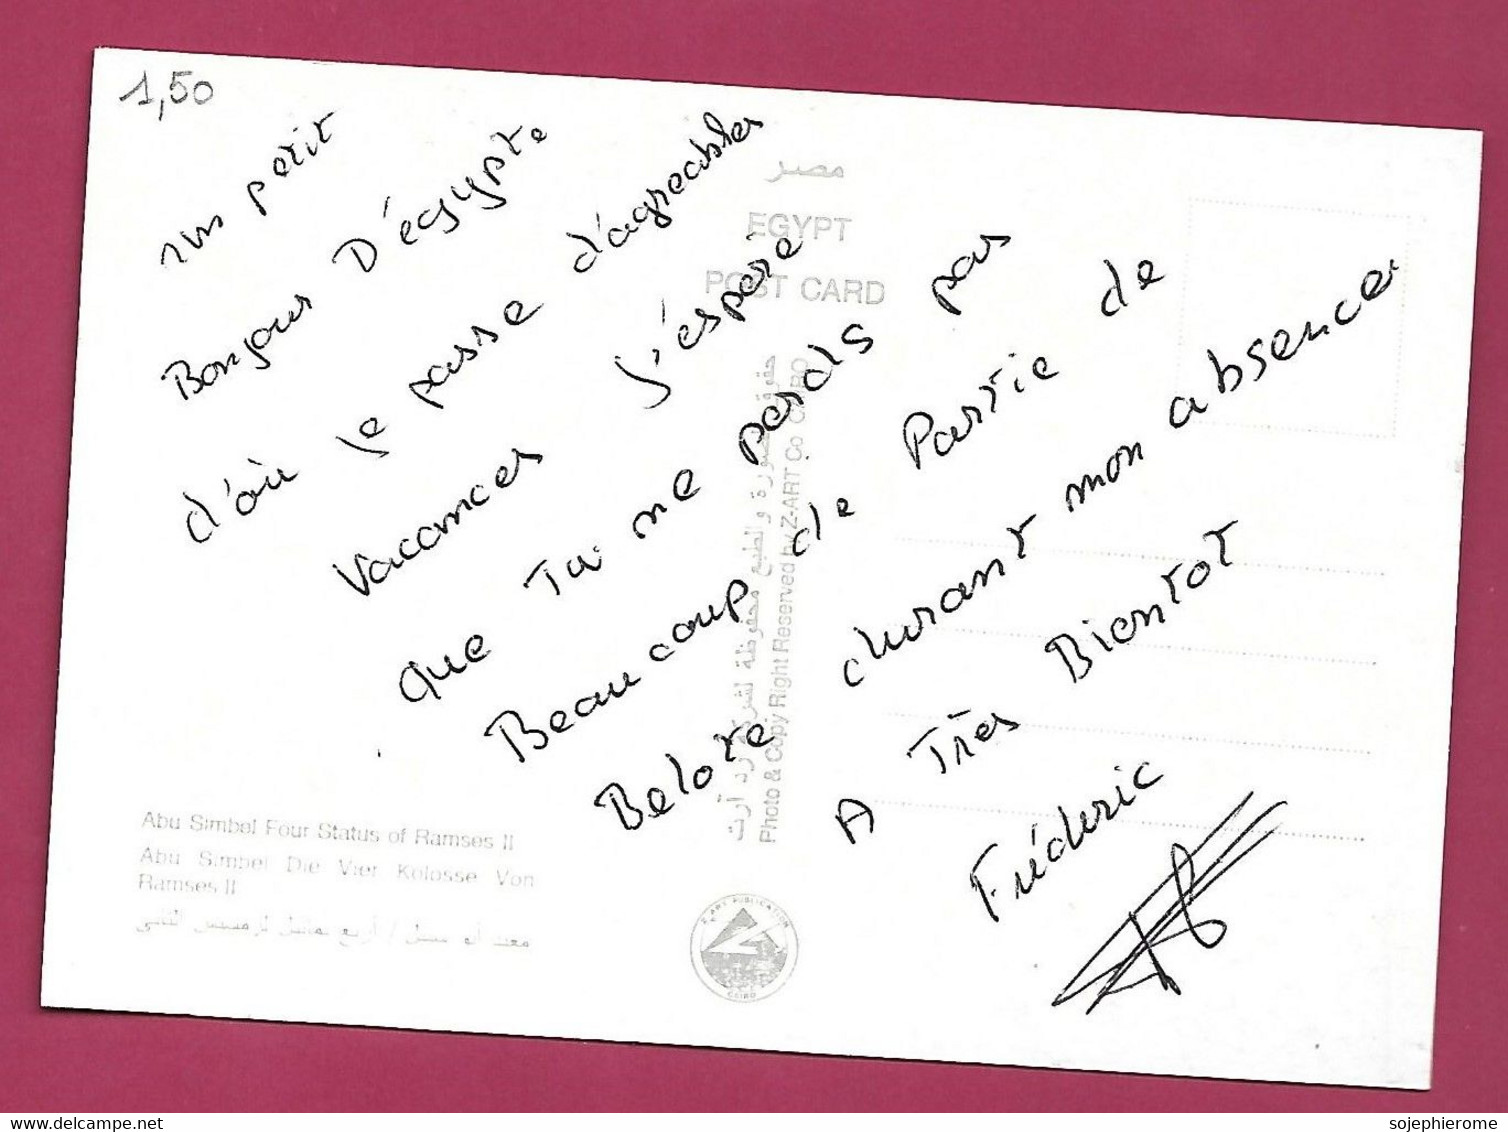 1,50
un petit
Bonjour D'égypte
d'où je passe d'agreables
Vacances J'éspère
que Tu ne perds pas
Beaucoup de Partie de
Belote durant mon absence.
A Très Bientot
Frédéric
مصر
EGYPT
POST CARD
حقوق الصورة والطبع محفوظة لشركة زد آرت
Photo & Copy Right Reserved by Z-ART Co CAIRO
Abu Simbel Four Status of Ramses II
Abu Simbel Die Vier Kolosse Von
Ramses II
معبد أبو سمبل / أربع تماثيل لرمسيس الثانى
Z ART PUBLICATION
CAIRO
delcampe.net
sojephierome